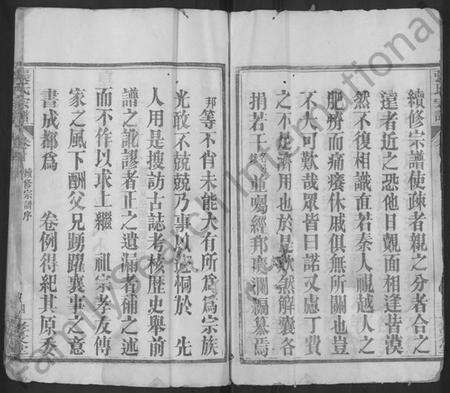 續修宗譜使疎者親之分者合之
遠者近之恐他日覿面相逢皆漠
然不復相識直若秦人視越人之
肥瘠而痛癢休戚俱無所關也豈
不大可歎哉眾皆曰諾又慮丁費
之不足濟用也於是歡然解囊各
捐若干
重囑經邦襄濶纂焉
邦等不肖未能大有所為為宗族
光敢不兢兢乃事以迓桐於 先
人用是搜訪古誌考核歷史舉前
譜之訛謬者正之遺漏者補之述
而不作以求上繼 祖宗孝友傳
家之風下酬父兄踴躍襄事之意
書成都為 卷例得紀其原委
張氏宗譜
卷
續修宗譜序
FamilySearch International